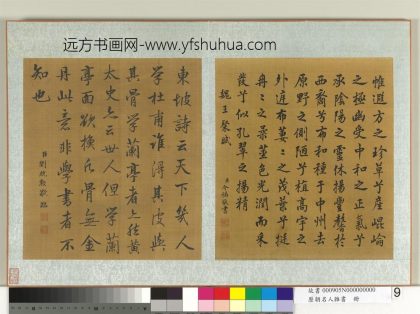 远方书画网-www.yfshuhua.com
惟遐方之珍草兮產崐崘
之極幽受中和之正氣兮
承陰陽之靈休揚豐馨於
西裔兮布和種于中州去
原野之側陋兮植高宇之
外庭布萋萋之茂葉兮挺
冉冉之柔莖色光潤而采
發兮似孔翠之揚精
魏王粲賦
東坡詩云天下幾人
學杜甫誰得其皮與
其骨學蘭亭者亦然黃
太史亦云世人但學蘭
亭面欲換凡骨無金
丹此意非學書者不
知也
臣劉統勳敬臨
故書 000905N000000000
歷朝名人雜書 冊
9